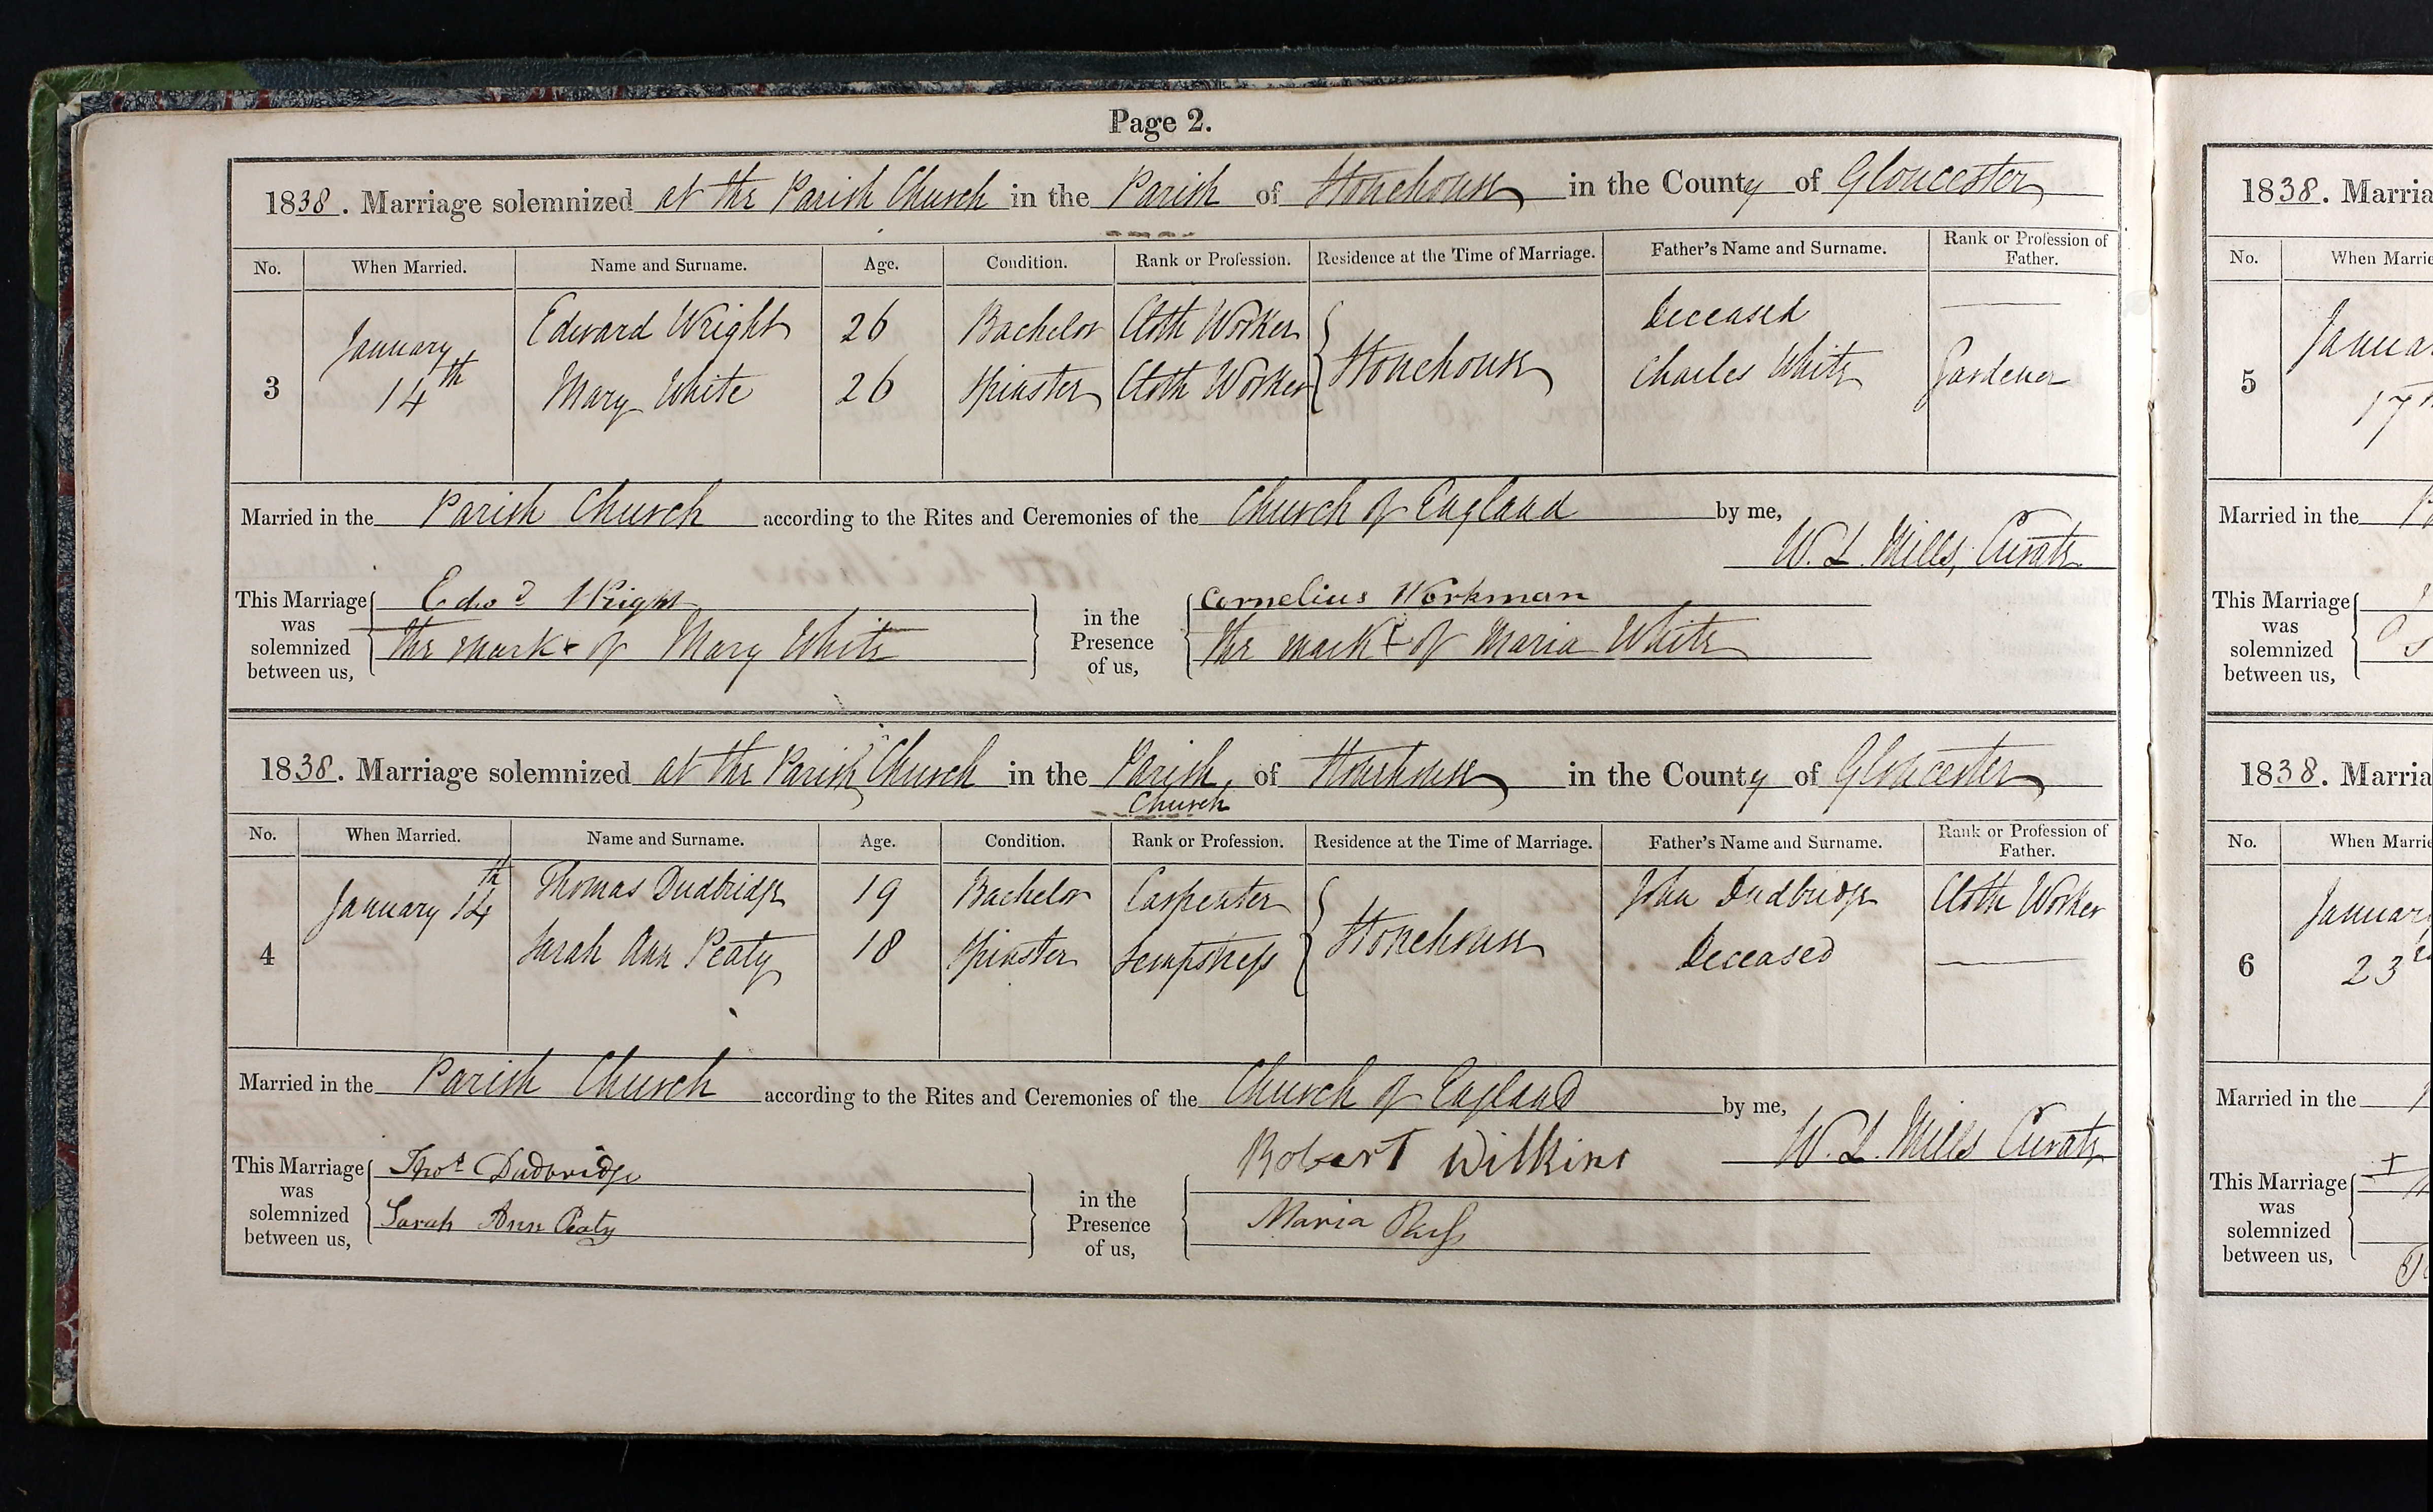 Page 2.
1838. Marriage solemnized at the Parish Church in the Parish of Stonehouse in the County of Gloucester
No. When Married. Name and Surname. Age. Condition. Rank or Profession. Residence at the Time of Marriage. Father's Name and Surname. Rank or Profession of Father.
3 January 14th Edward Wright 26 Bachelor Cloth Worker Stonehouse Deceased
Mary White 26 Spinster Cloth Worker Charles White Gardener
Married in the Parish Church according to the Rites and Ceremonies of the Church of England by me,
W. L. Mills, Curate
This Marriage was solemnized between us, Edwd Wright
the mark + of Mary White
in the Presence of us, Cornelius Workman
the mark + of Maria White
1838. Marriage solemnized at the Parish Church in the Parish of Stonehouse in the County of Gloucester
Church
No. When Married. Name and Surname. Age. Condition. Rank or Profession. Residence at the Time of Marriage. Father's Name and Surname. Rank or Profession of Father.
4 January 14th Thomas Dudbridge 19 Bachelor Carpenter Stonehouse John Dudbridge Cloth Worker
Sarah Ann Peaty 18 Spinster Sempstress Deceased
Married in the Parish Church according to the Rites and Ceremonies of the Church of England by me,
W. L. Mills Curate
This Marriage was solemnized between us, Thos Dudbridge
Sarah Ann Peaty
in the Presence of us, Robert Wilkins
Maria
1838. Marria
No. When Marrie
5 Januar
17th
Married in the
This Marriage was solemnized between us,
1838. Marria
No. When Marrie
6 January
23rd
Married in the
This Marriage was solemnized between us,